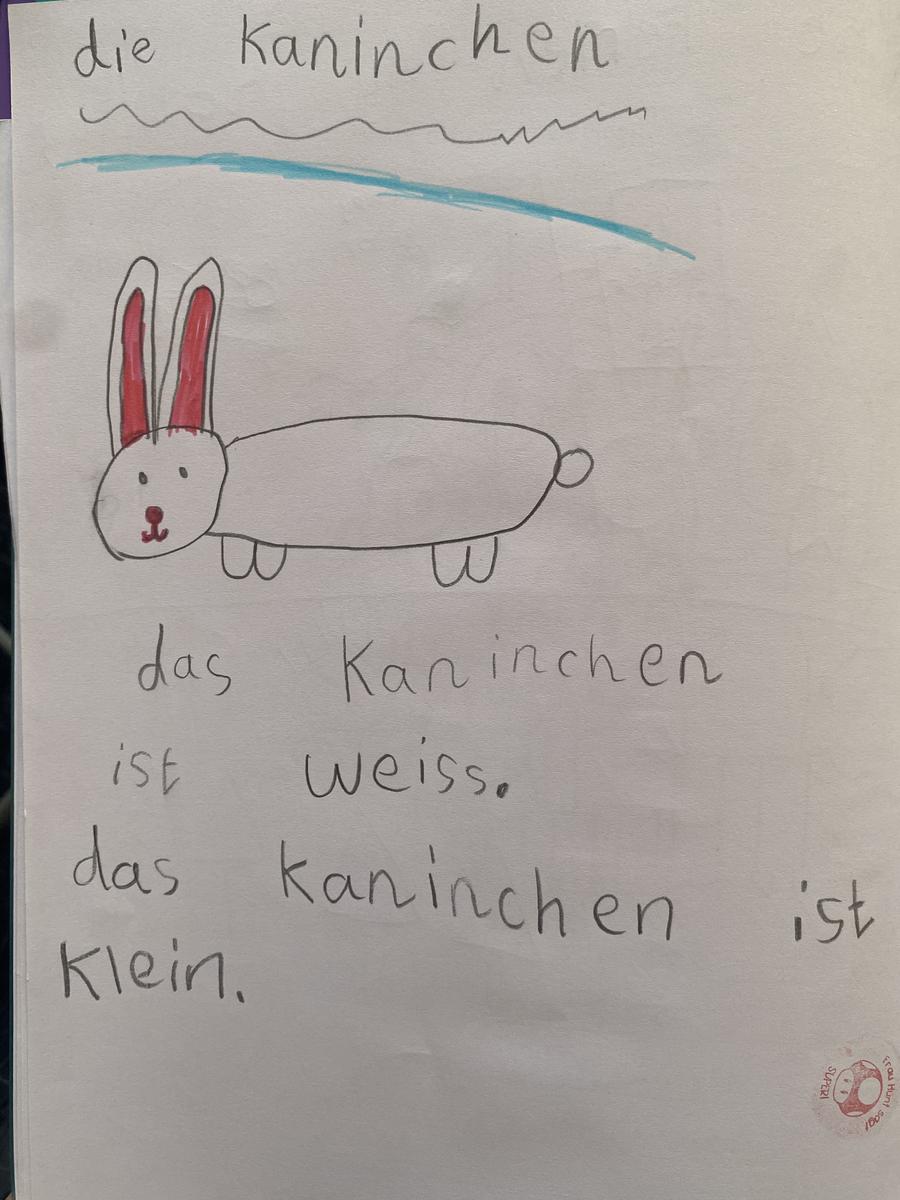 die kaninchen
das Kaninchen
ist weiss.
das kaninchen ist
Klein.
Frau Hunt sagt
SUPER!